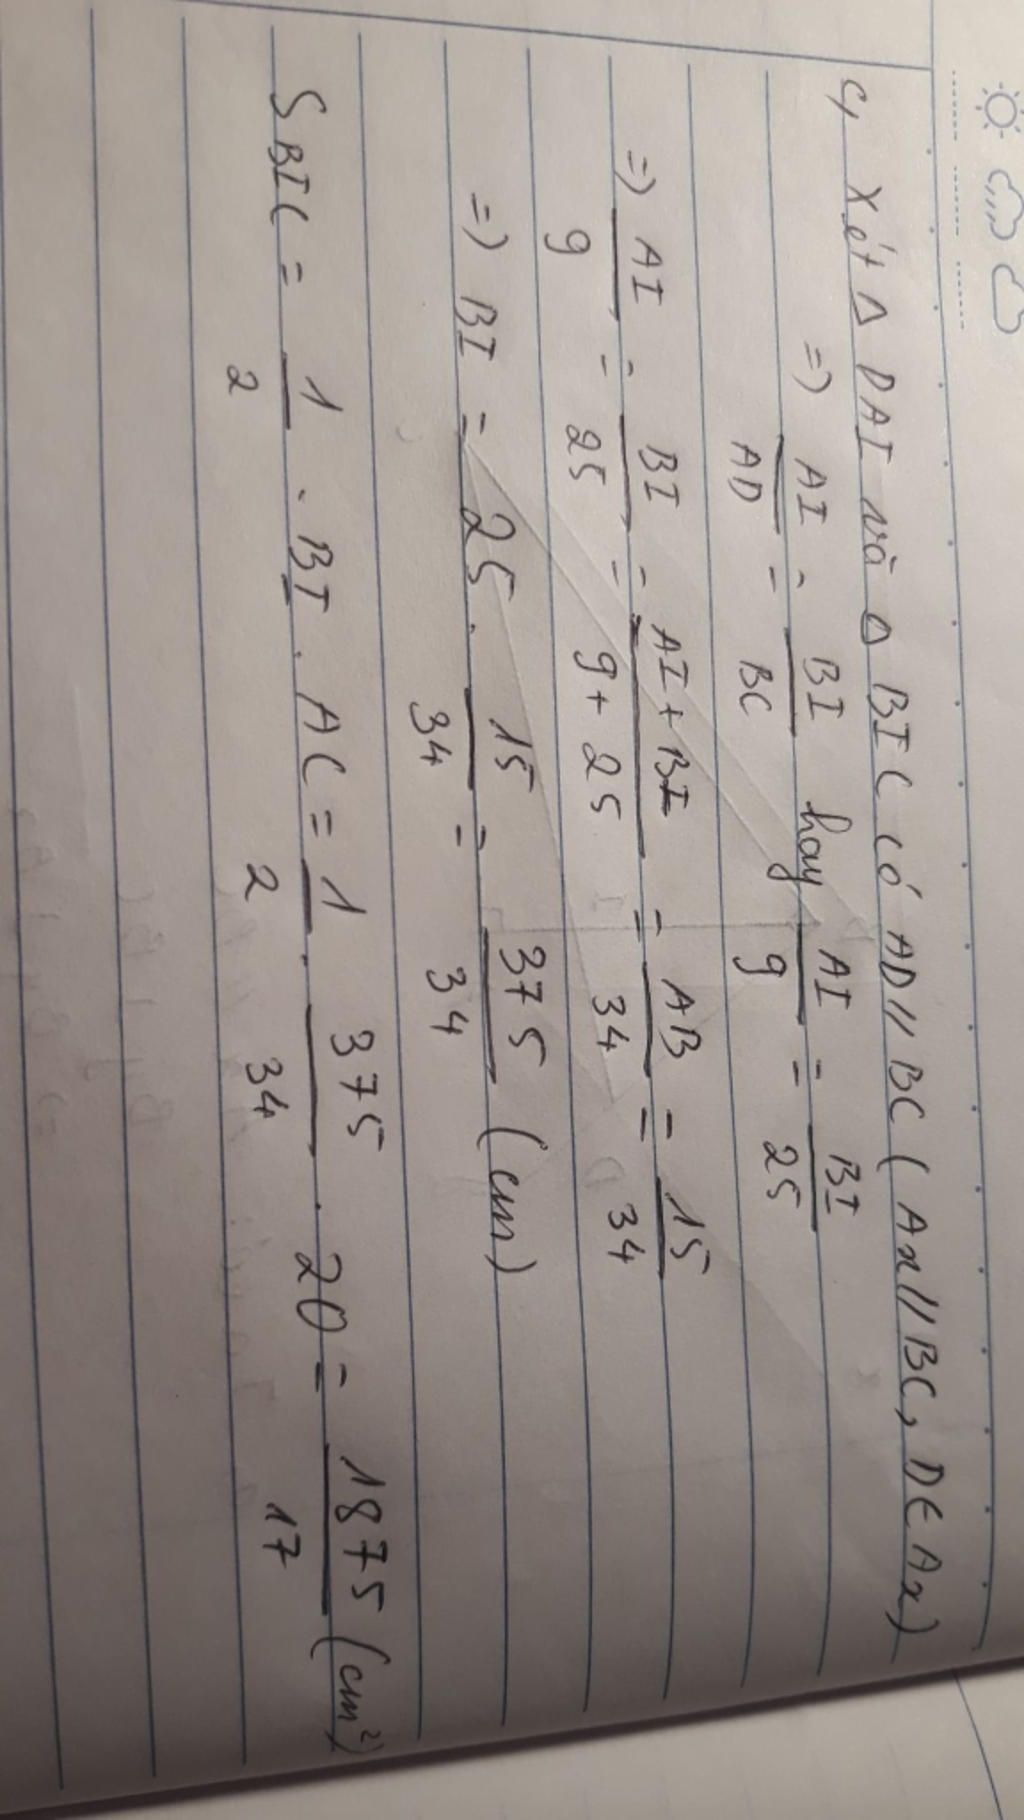 c, Xét Δ DAI và Δ BIC có AD // BC ( Ax // BC, D ∈ Ax)
=> AI/AD = BI/BC hay AI/9 = BI/25
=> AI/9 = BI/25 = AI + BI/9 + 25 = AB/34 = 15/34
=> BI = 25 . 15/34 = 375/34 (cm)
S BIC = 1/2 . BI . AC = 1/2 . 375/34 . 20 = 1875/17 (cm²)